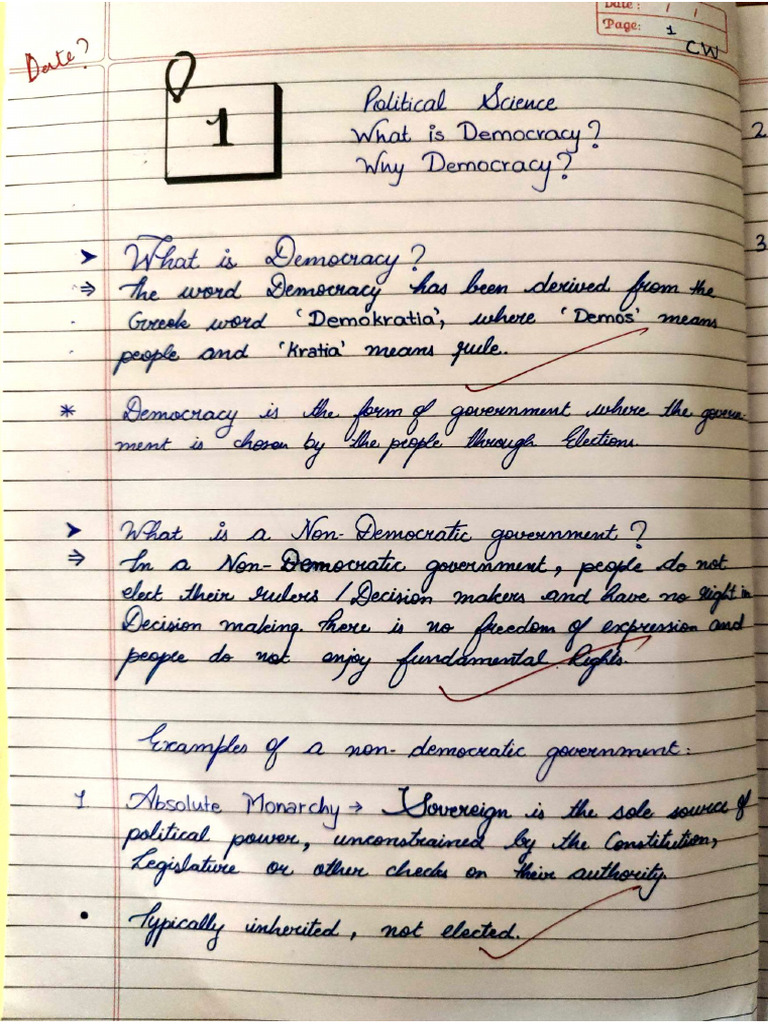 Date :
Page: 1
CW
Date?
1
Political Science
What is Democracy?
Why Democracy?
2
3
➤ What is Democracy?
⇒ The word Democracy has been derived from the
Greek word 'Demokratia', where 'Demos' means
people and 'Kratia' means rule.
* Democracy is the form of government where the govern-
ment is chosen by the people through Elections.
➤ What is a Non-Democratic government?
⇒ In a Non-Democratic government, people do not
elect their rulers / Decision makers and have no right in
Decision making. There is no freedom of expression and
people do not enjoy fundamental Rights.
Examples of a non-democratic government:
1 Absolute Monarchy → Sovereign is the sole source of
political power, unconstrained by the Constitution,
Legislature or other checks on their authority.
• Typically inherited, not elected.